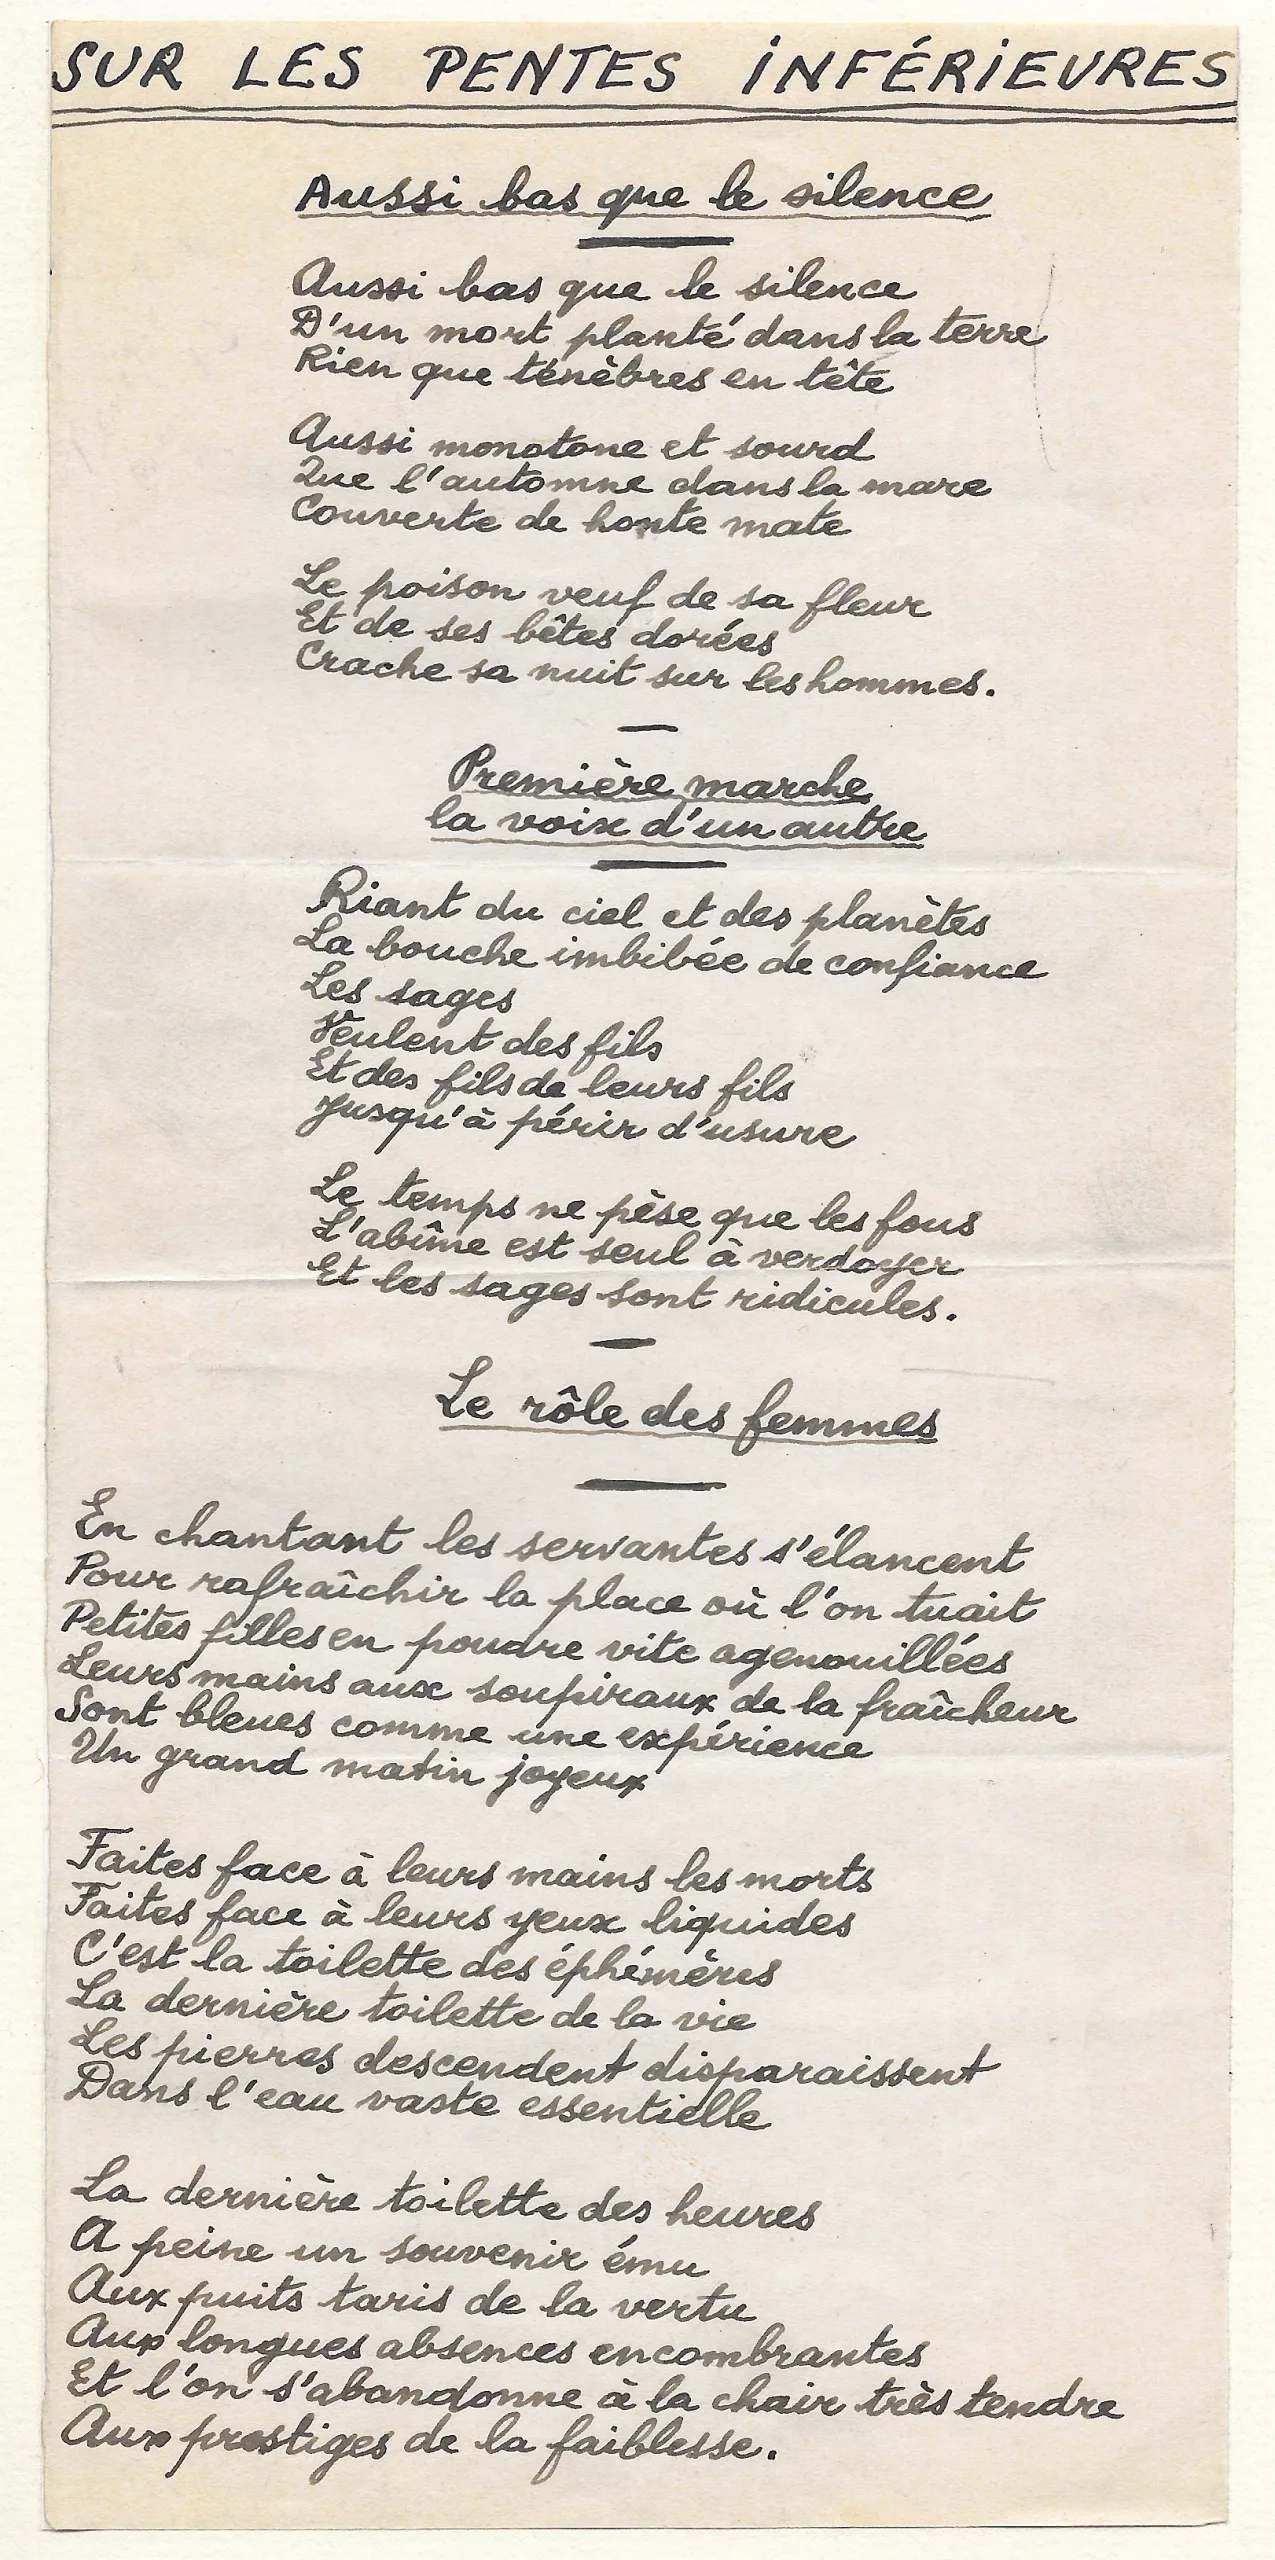 SUR LES PENTES INFÉRIEURES
Aussi bas que le silence
Aussi bas que le silence
D'un mort planté dans la terre
Rien que ténèbres en tête
Aussi monotone et sourd
Que l'automne dans la mare
Couverte de honte mate
Le poison veuf de sa fleur
Et de ses bêtes dorées
Crache sa nuit sur les hommes.
Première marche
la voix d'un autre
Riant du ciel et des planètes
La bouche imbibée de confiance
Les sages
Veulent des fils
Et des fils de leurs fils
Jusqu'à périr d'usure
Le temps ne pèse que les fous
L'abîme est seul à verdoyer
Et les sages sont ridicules.
Le rôle des femmes
En chantant les servantes s'élancent
Pour rafraîchir la place où l'on tuait
Petites filles en poudre vite agenouillées
Leurs mains aux soupiraux de la fraîcheur
Sont bleues comme une expérience
Un grand matin joyeux
Faites face à leurs mains les morts
Faites face à leurs yeux liquides
C'est la toilette des éphémères
La dernière toilette de la vie
Les pierres descendent disparaissent
Dans l'eau vaste essentielle
La dernière toilette des heures
A peine un souvenir ému
Aux puits taris de la vertu
Aux longues absences encombrantes
Et l'on s'abandonne à la chair très tendre
Aux prestiges de la faiblesse.